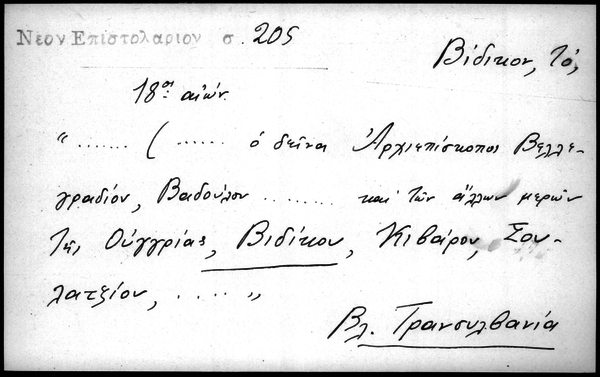 Νεον Επιστολαριον σ. 205
Βίδικον, τό,
18ος αἰών.
" ...... ( ...... ὁ δεῖνα Ἀρχιεπίσκοπος Βελλε-
γραδίον, Βαδούλον ........ καὶ τῶν ἄλλων μερῶν
τῆς Οὑγγρίας, Βιδίκου, Κιβάρου, Σου-
λατζίου, .... "
Βλ. Τρανσυλβανία